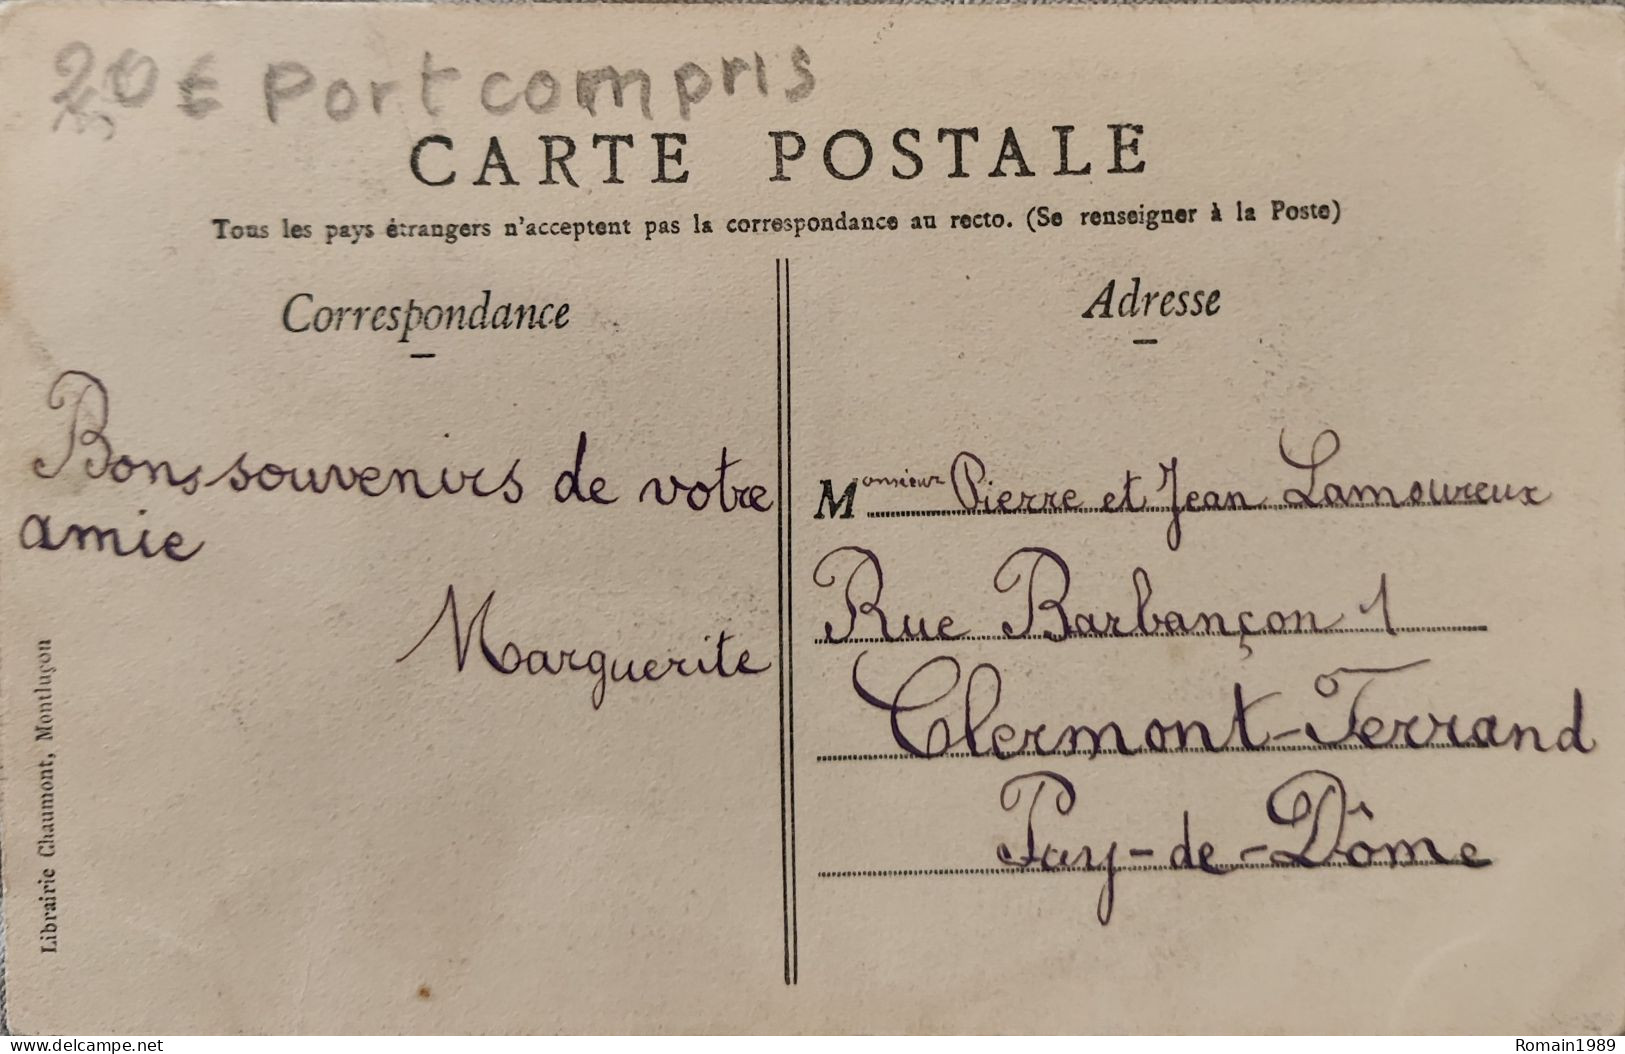 20€ Port compris
CARTE POSTALE
Tous les pays étrangers n'acceptent pas la correspondance au recto. (Se renseigner à la Poste)
Correspondance
Bons souvenirs de votre
amie
Marguerite
Adresse
Monsieur Pierre et Jean Lamoureux
Rue Barbançon 1
Clermont-Ferrand
Puy-de-Dôme
Librairie Chaumont, Montluçon
delcampe.net
Romain1989